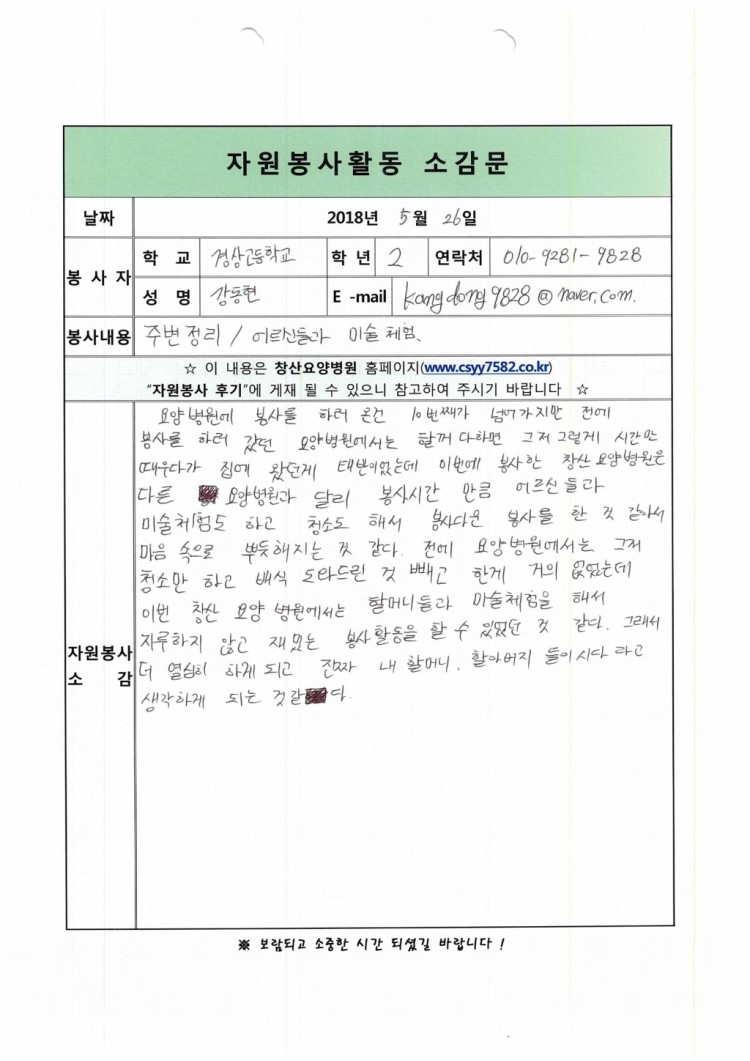 자원봉사활동 소감문
날짜 2018년 5월 26일
봉사자 학 교 경상고등학교 학년 2 연락처 010-9281-9828
성 명 강동현 E-mail kangdong9828@naver.com.
봉사내용 주변정리 / 어르신들과 미술 체험.
☆ 이 내용은 창산요양병원 홈페이지(www.csyy7582.co.kr)
"자원봉사 후기"에 게재 될 수 있으니 참고하여 주시기 바랍니다 ☆
자원봉사 소 감
요양병원에 봉사를 하러 온건 10번째가 넘어가지만 전에
봉사를 하러 갔던 요양병원에서는 할꺼 다하면 그저 그렇게 시간만
때우다가 집에 왔던게 태반이었는데 이번에 봉사한 창산요양병원은
다른 요양병원과 달리 봉사시간 만큼 어르신들과
미술체험도 하고 청소도 해서 봉사다운 봉사를 한 것 같아서
마음 속으로 뿌듯해지는 것 같다. 전에 요양병원에서는 그저
청소만 하고 배식 도와드린 것 빼고 한게 거의 없었는데
이번 창산 요양 병원에서는 할머니들과 미술체험을 해서
지루하지 않고 재밌는 봉사활동을 할 수 있었던 것 같다. 그래서
더 열심히 하게 되고 진짜 내 할머니, 할아버지 들이시다 라고
생각하게 되는 것같다.
※ 보람되고 소중한 시간 되셨길 바랍니다 !